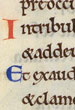 pre occu
In tribul
& adder
Et exaud
& clam